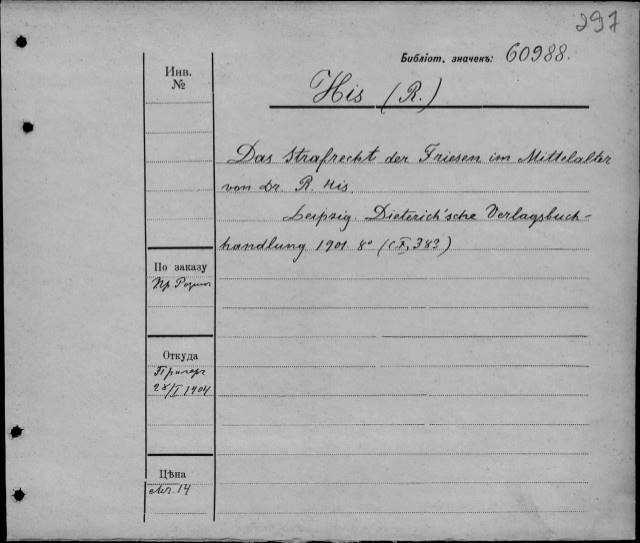 297
Библіот. значекъ: 60988.
His (R.)
Инв.
№
Das Strafrecht der Friesen im Mittelalter
von Dr. R. His.
Leipzig. Dieterich'sche Verlagsbuch-
handlung 1901 8° (X, 383)
По заказу
Пр
Откуда
28/I 1904
Цѣна
14